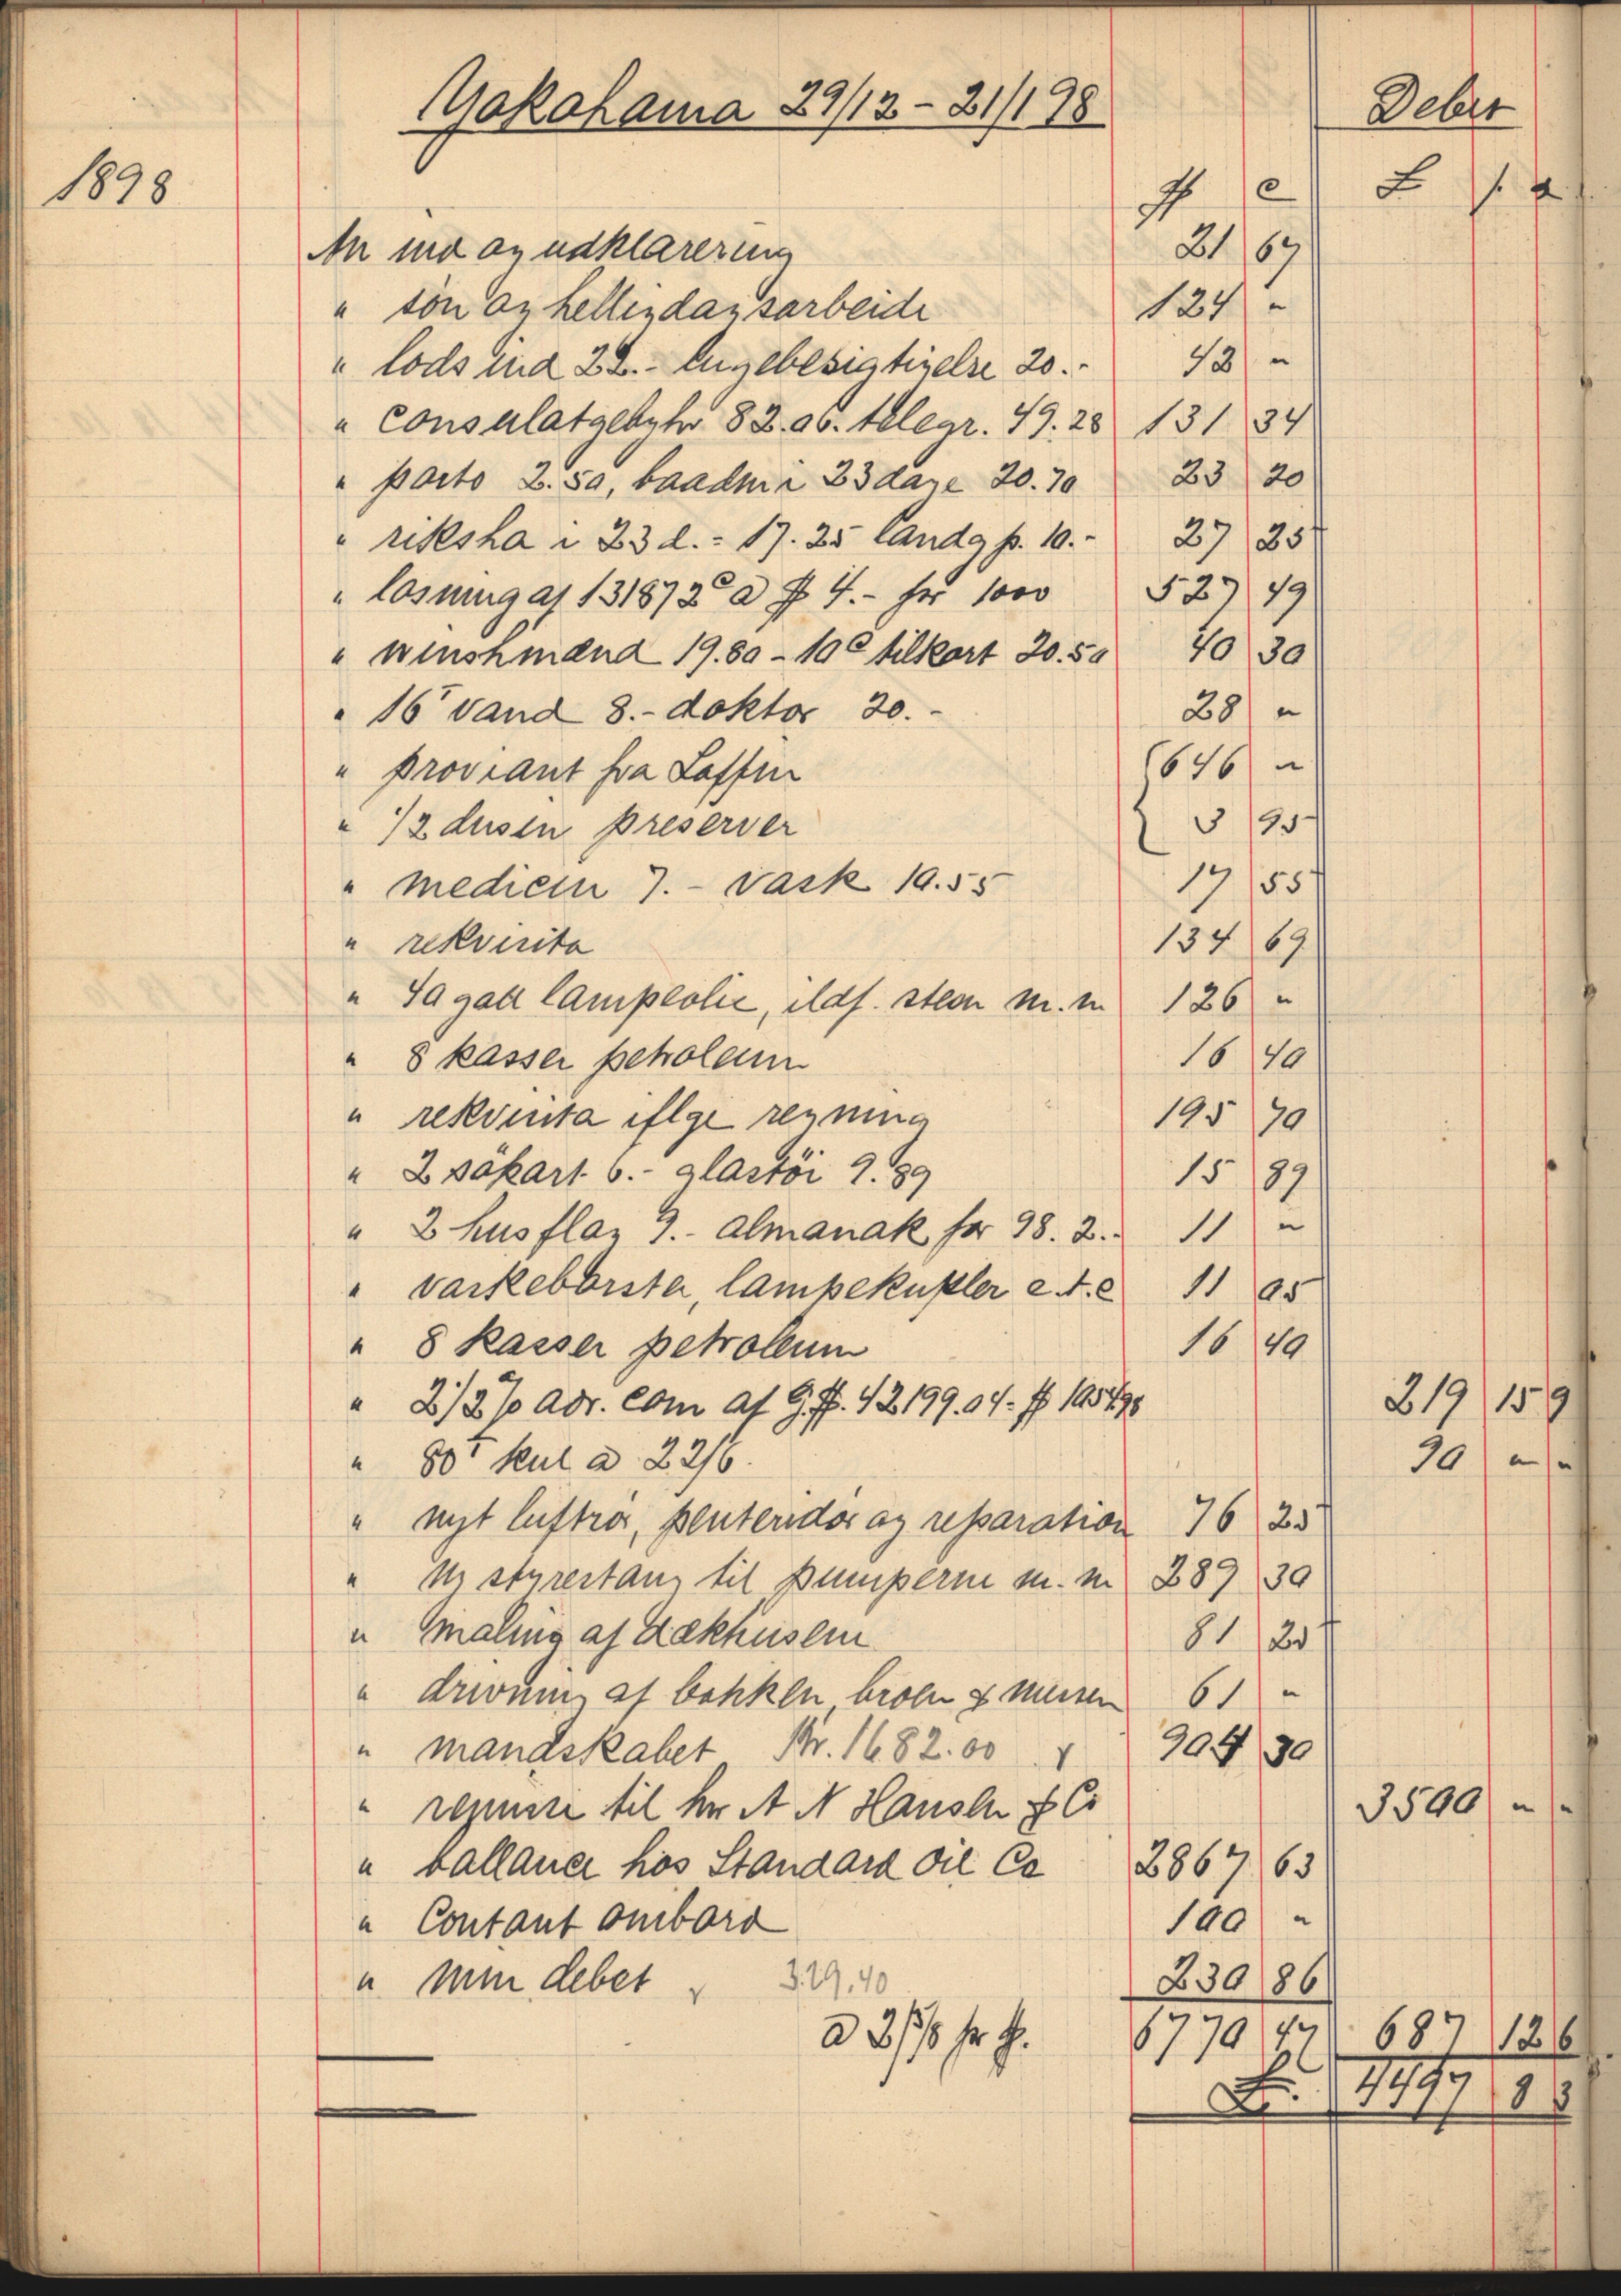 Yokohama 29/12 - 21/1 98 Debet
1898 $ c £ s. d.
An ind og udklarering 21 67
" søn og helligdagsarbeide 124 "
" lods ind 22.- lugebesigtigelse 20.- 42 "
" consulatgebyhr 82.06. telegr. 49.28 131 34
" porto 2.50, baadleie 23 dage 20.70 23 20
" riksha i 23 d. = 17.25 landg p. 10.- 27 25
" losning af 131872 c a $ 4.- for 1000 527 49
" winshmænd 19.80 - 10 c tilkort 20.50 40 30
" 16 T vand 8.- doktor 20.- 28 "
" proviant fra Laffin 646 "
" 1/2 dusin preserver 3 95
" medicin 7.- vask 10.55 17 55
" rekvisita 134 69
" gall lampeolie, ildf. sten m.m 126 "
" 8 kasser petroleum 16 40
" rekvisita iflge regning 195 70
" 2 søkart 6.- glastöi 9.89 15 89
" 2 husflag 9.- almanak for 98. 2.- 11 "
" vaskebørster, lampekupler e.t.c 11 05
" 8 kasser petroleum 16 40
" 2 1/2 % adr. com af G.$. 42199.04 = $ 1054.98 219 15 9
" 80 T kul a 22/6. 90 " "
" nyt luftrør, penteridør og reparation 76 25
" ny styrestang til pumperne m.m 289 30
" Maling af dækhusene 81 25
" drivning af bakken, broen & messen 61 "
" mandskabet Kr. 1682.00 904 30
" remisse til hr A N Hansen & Co 3590 " "
" ballance hos Standard Oil Co 2867 63
" Contant ombord 100 "
" min debet 329.40 230 86
a 2/ pr $. 6770 47 687 12 6
£. 4497 8 3